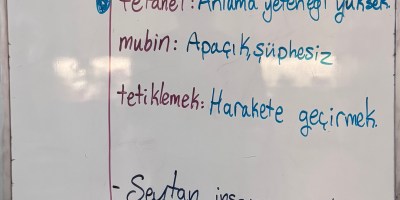 fetanet: Anlama yeteneği yüksek
mubin: Apaçık, şüphesiz
tetiklemek: Harakete geçirmek.
- Şeytan